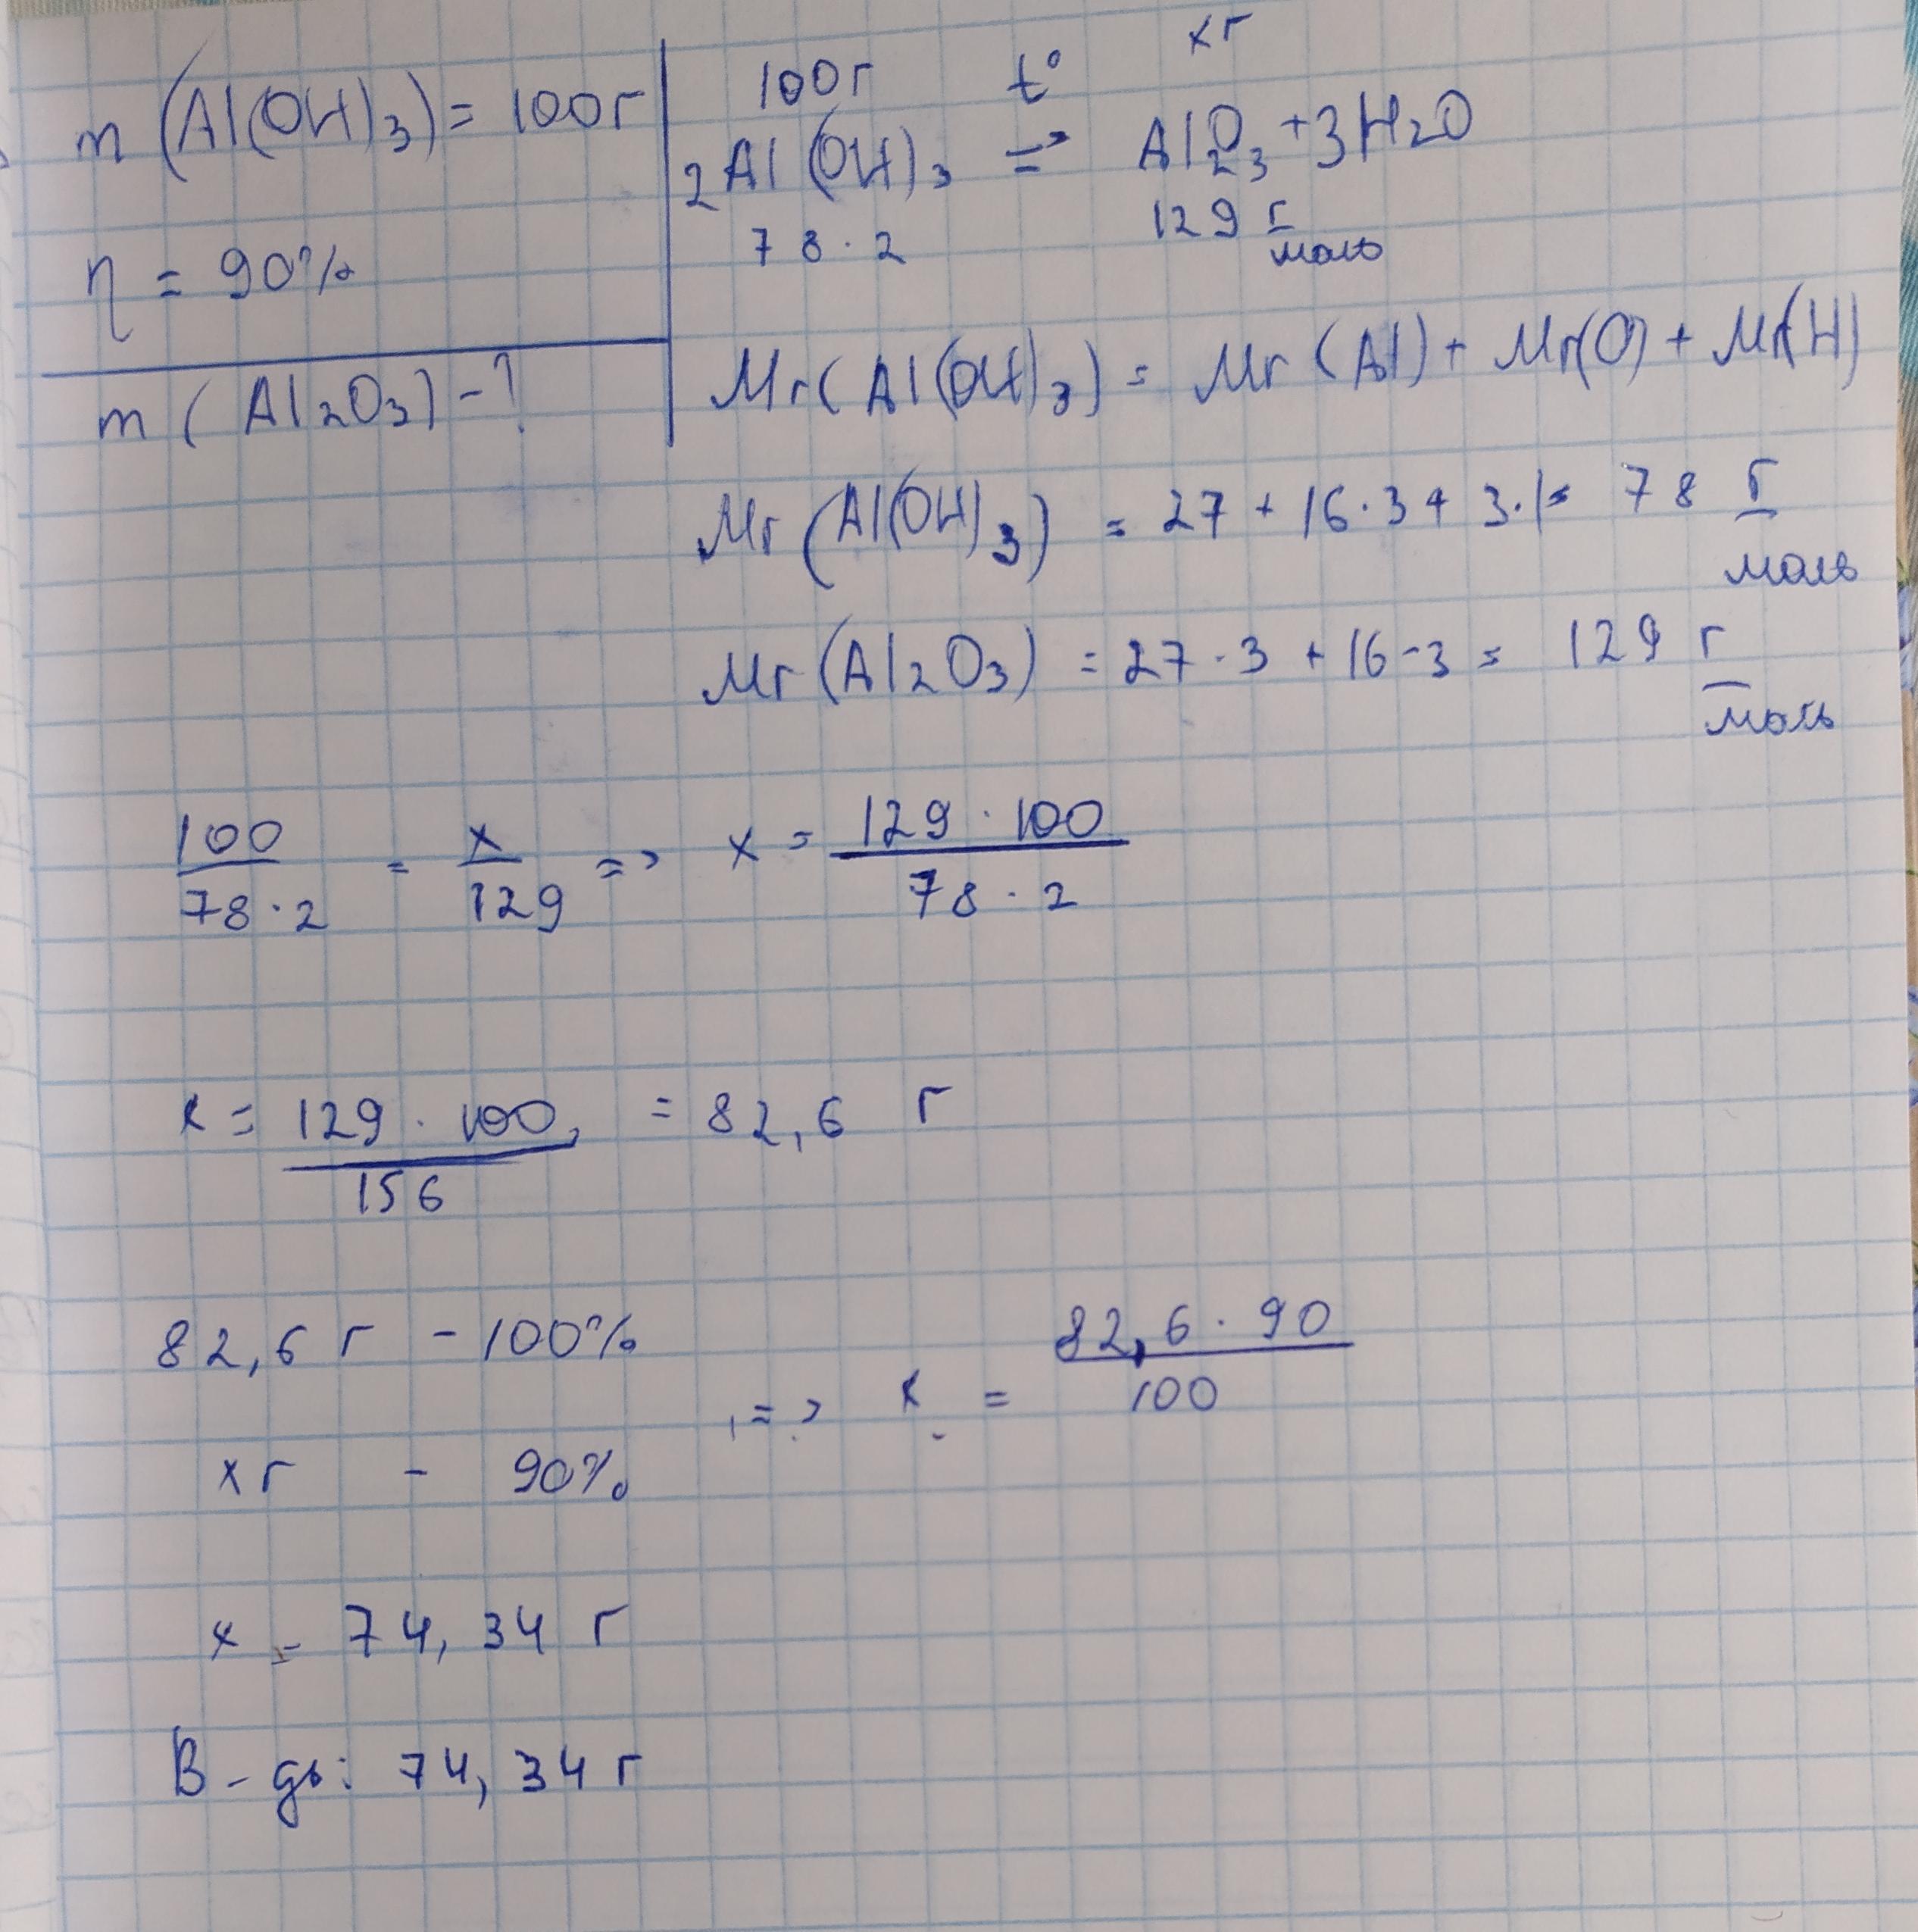 m (Al(OH)3) = 100г
η = 90%
m (Al2O3) - ?
100г t° xг
2Al(OH)3 => Al2O3 + 3H2O
78 · 2 129 г/моль
Mr(Al(OH)3) = Mr(Al) + Mr(O) + Mr(H)
Mr(Al(OH)3) = 27 + 16·3 + 3·1 = 78 г/моль
Mr(Al2O3) = 27·3 + 16·3 = 129 г/моль
100/78·2 = x/129 => x = 129·100/78·2
x = 129·100/156 = 82,6 г
82,6 г - 100%
=> x = 82,6·90/100
xг - 90%
x = 74,34 г
В-дь: 74,34 г